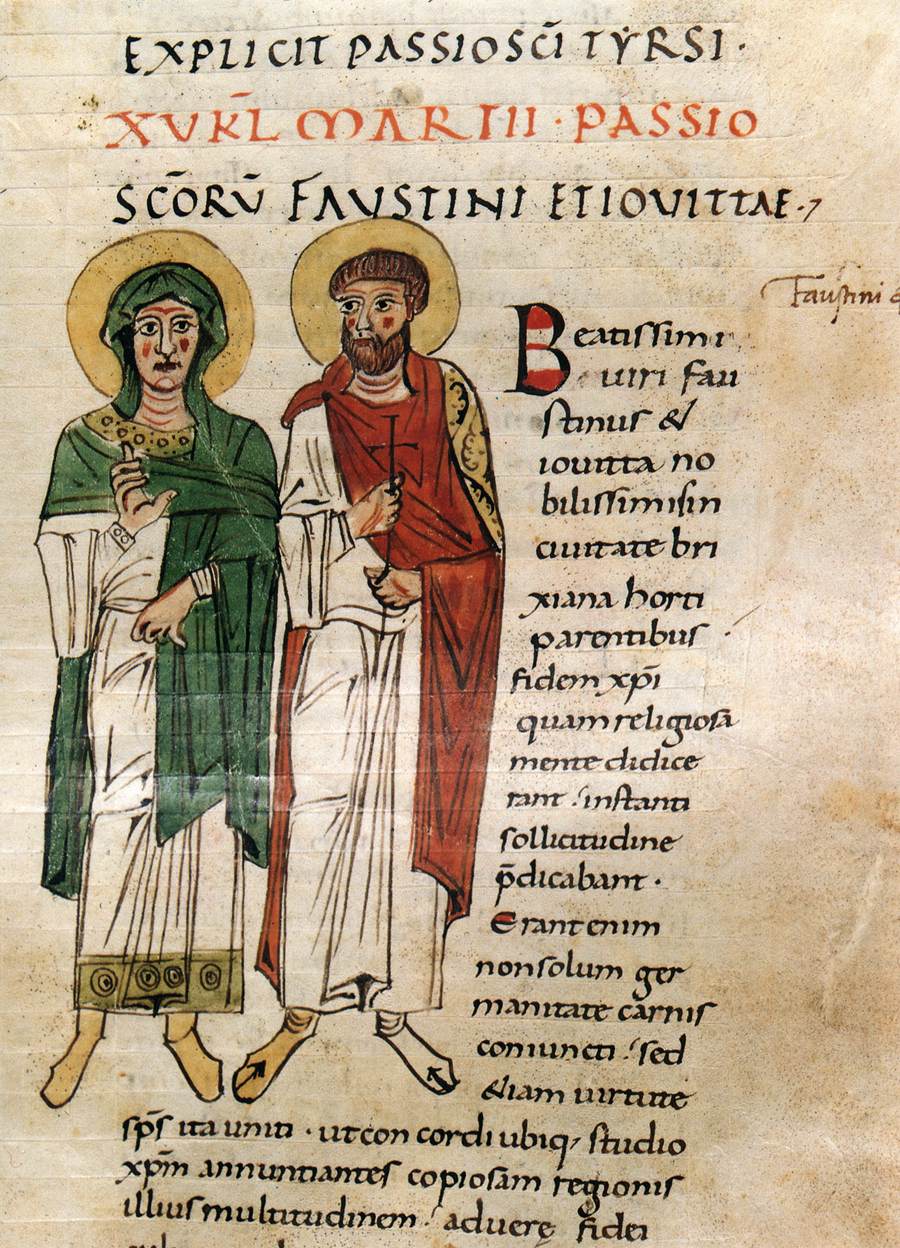 EXPLICIT PASSIO SC̄I TYRSI·
XV K̄L MARTII · PASSIO
SC̄ORŪ FAUSTINI ET IOVITTAE·7
Faustini &
Beatissimi
uiri fau
stinus &
iouitta no
bilissimis in
ciuitate bri
xiana horti
parentibus
fidem xp̄i
quam religiosā
mente didice
rant · instanti
sollicitudine
p̄dicabant ·
Erant enim
non solum ger
manitate carnis
coniuncti · sed
&iam uirtute
sp̄s ita uniti · ut con cordi ubiq; studio
xp̄m annuntiantes copiosam regionis
illius multitudinem · ad uerę fidei